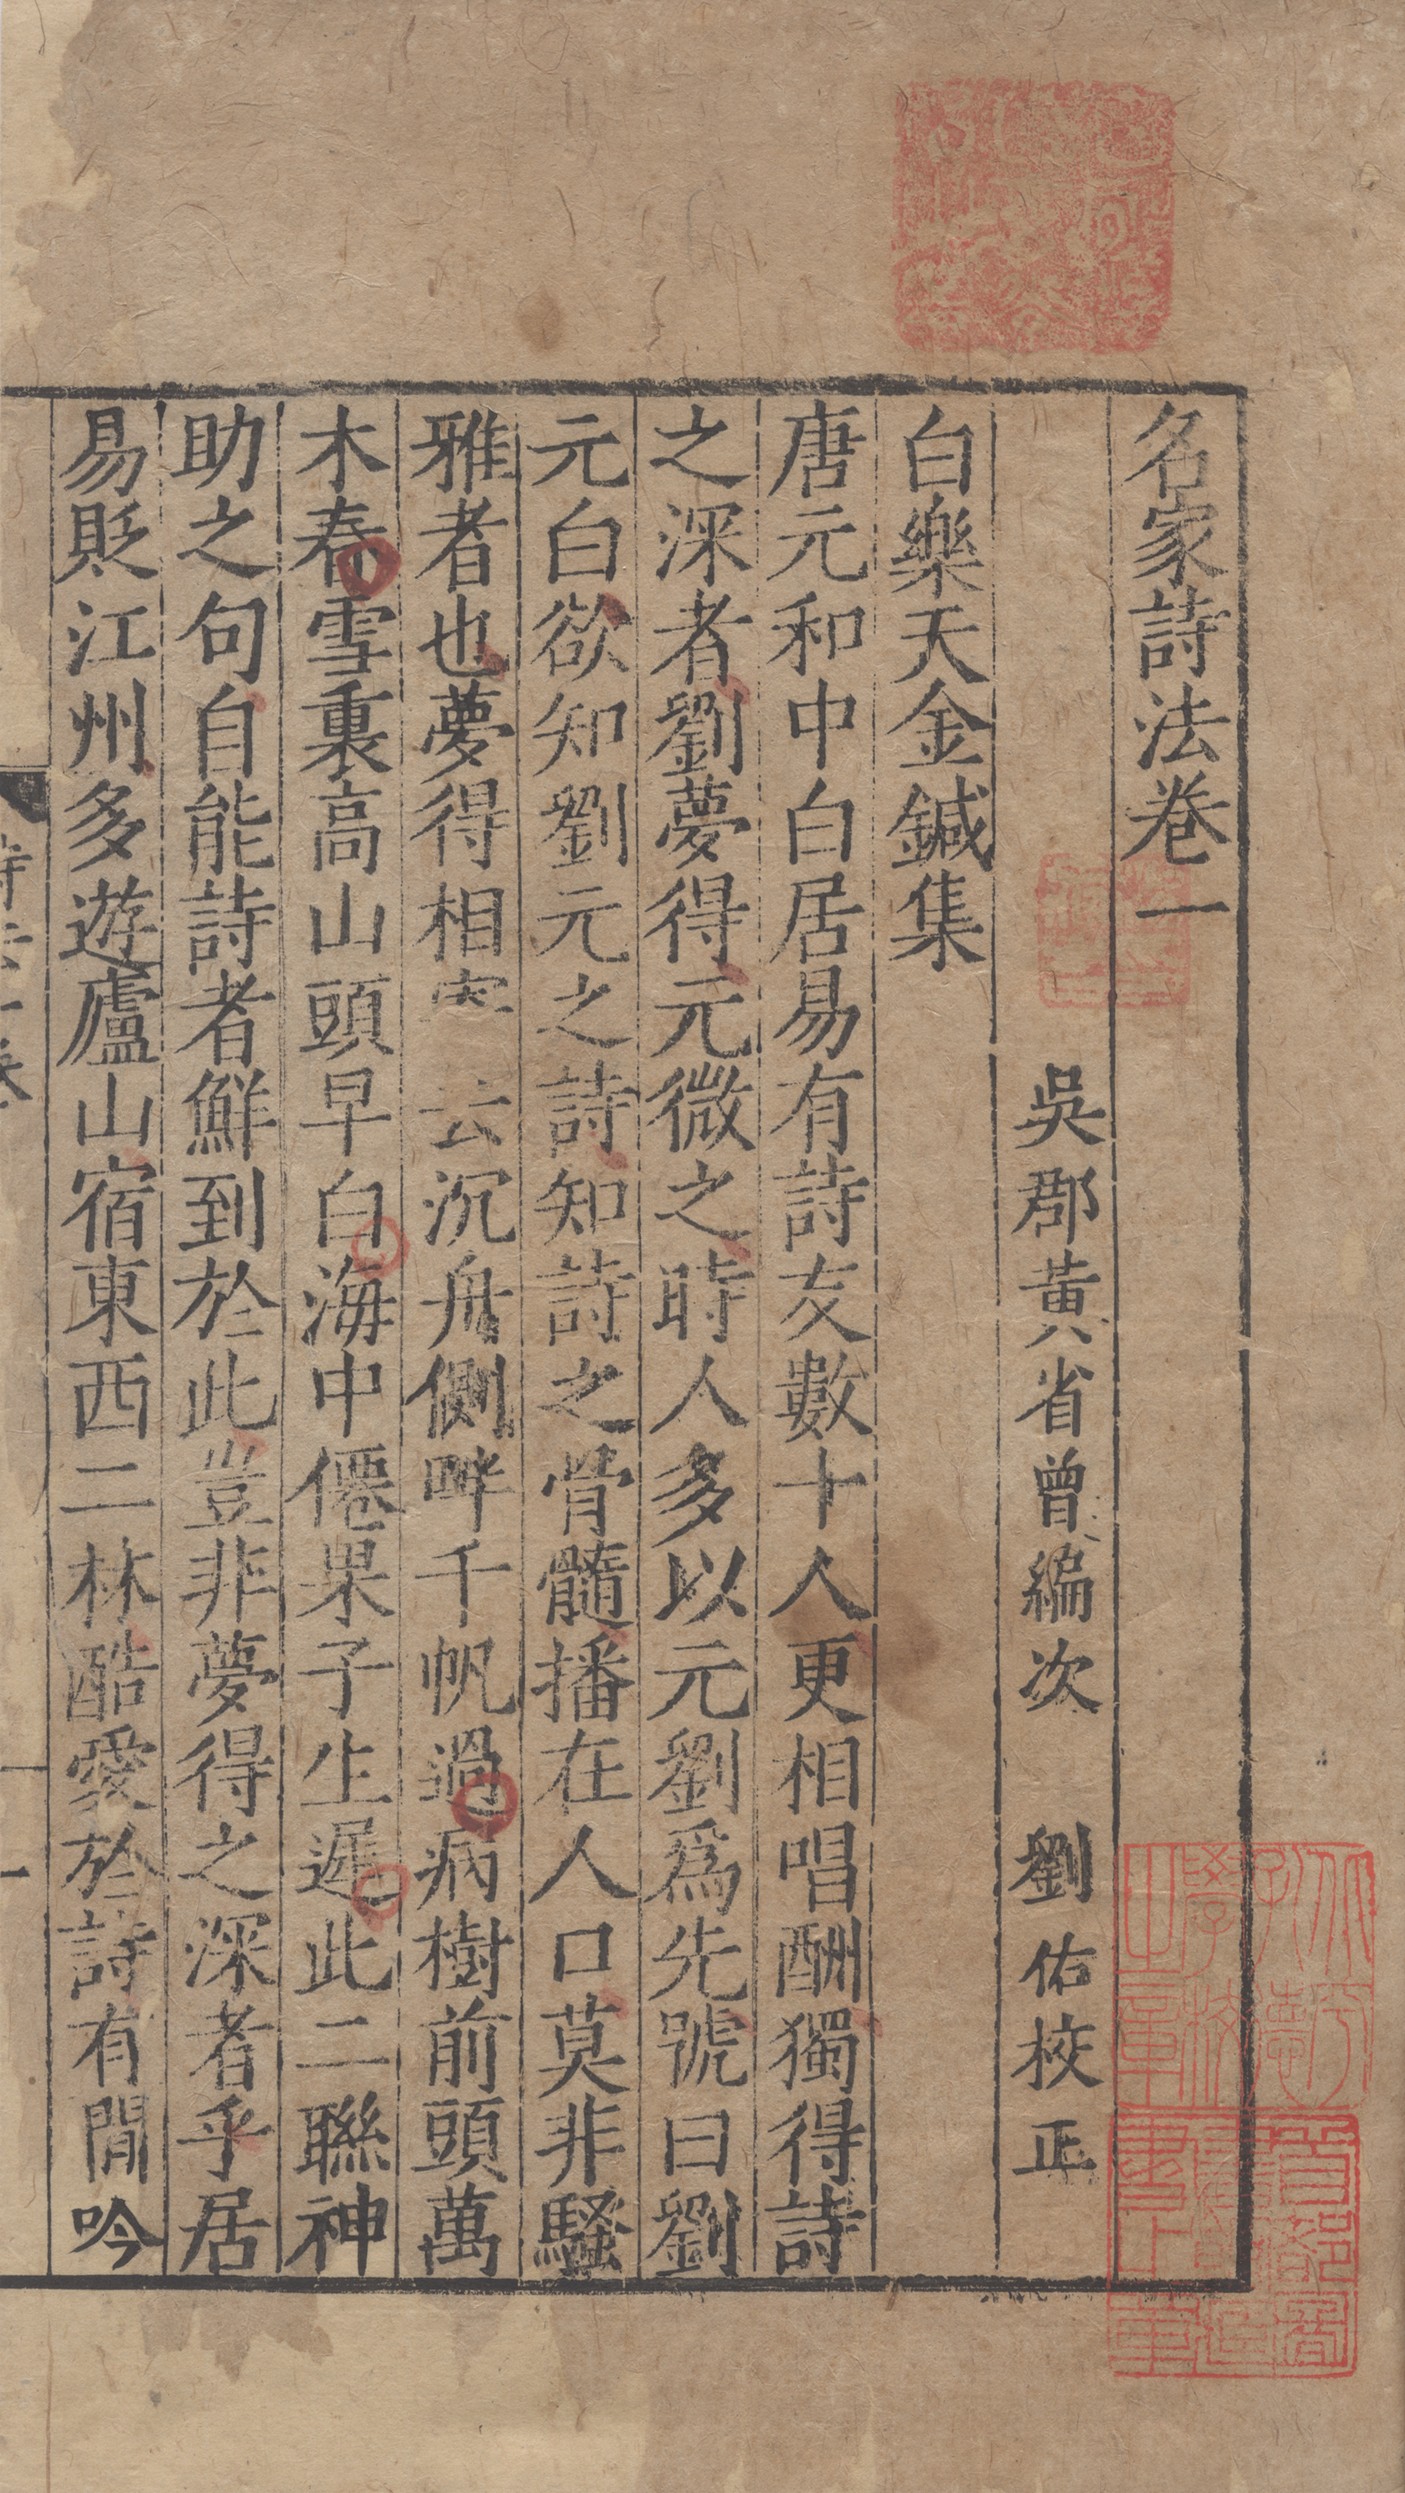 名家詩法卷一
吳郡黃省曾編次　劉佑校正
白樂天金鍼集
唐元和中白居易有詩友數十人更相唱酬獨得詩
之深者劉夢得元微之時人多以元劉爲先號曰劉
元白欲知劉元之詩知詩之骨髓播在人口莫非騷
雅者也夢得相　云沉舟側畔千帆過病樹前頭萬
木春雪裏高山頭早白海中僊果子生遲此二聯神
助之句自能詩者鮮到於此豈非夢得之深者乎居
易貶江州多遊廬山宿東西二林酷愛於詩有閒吟